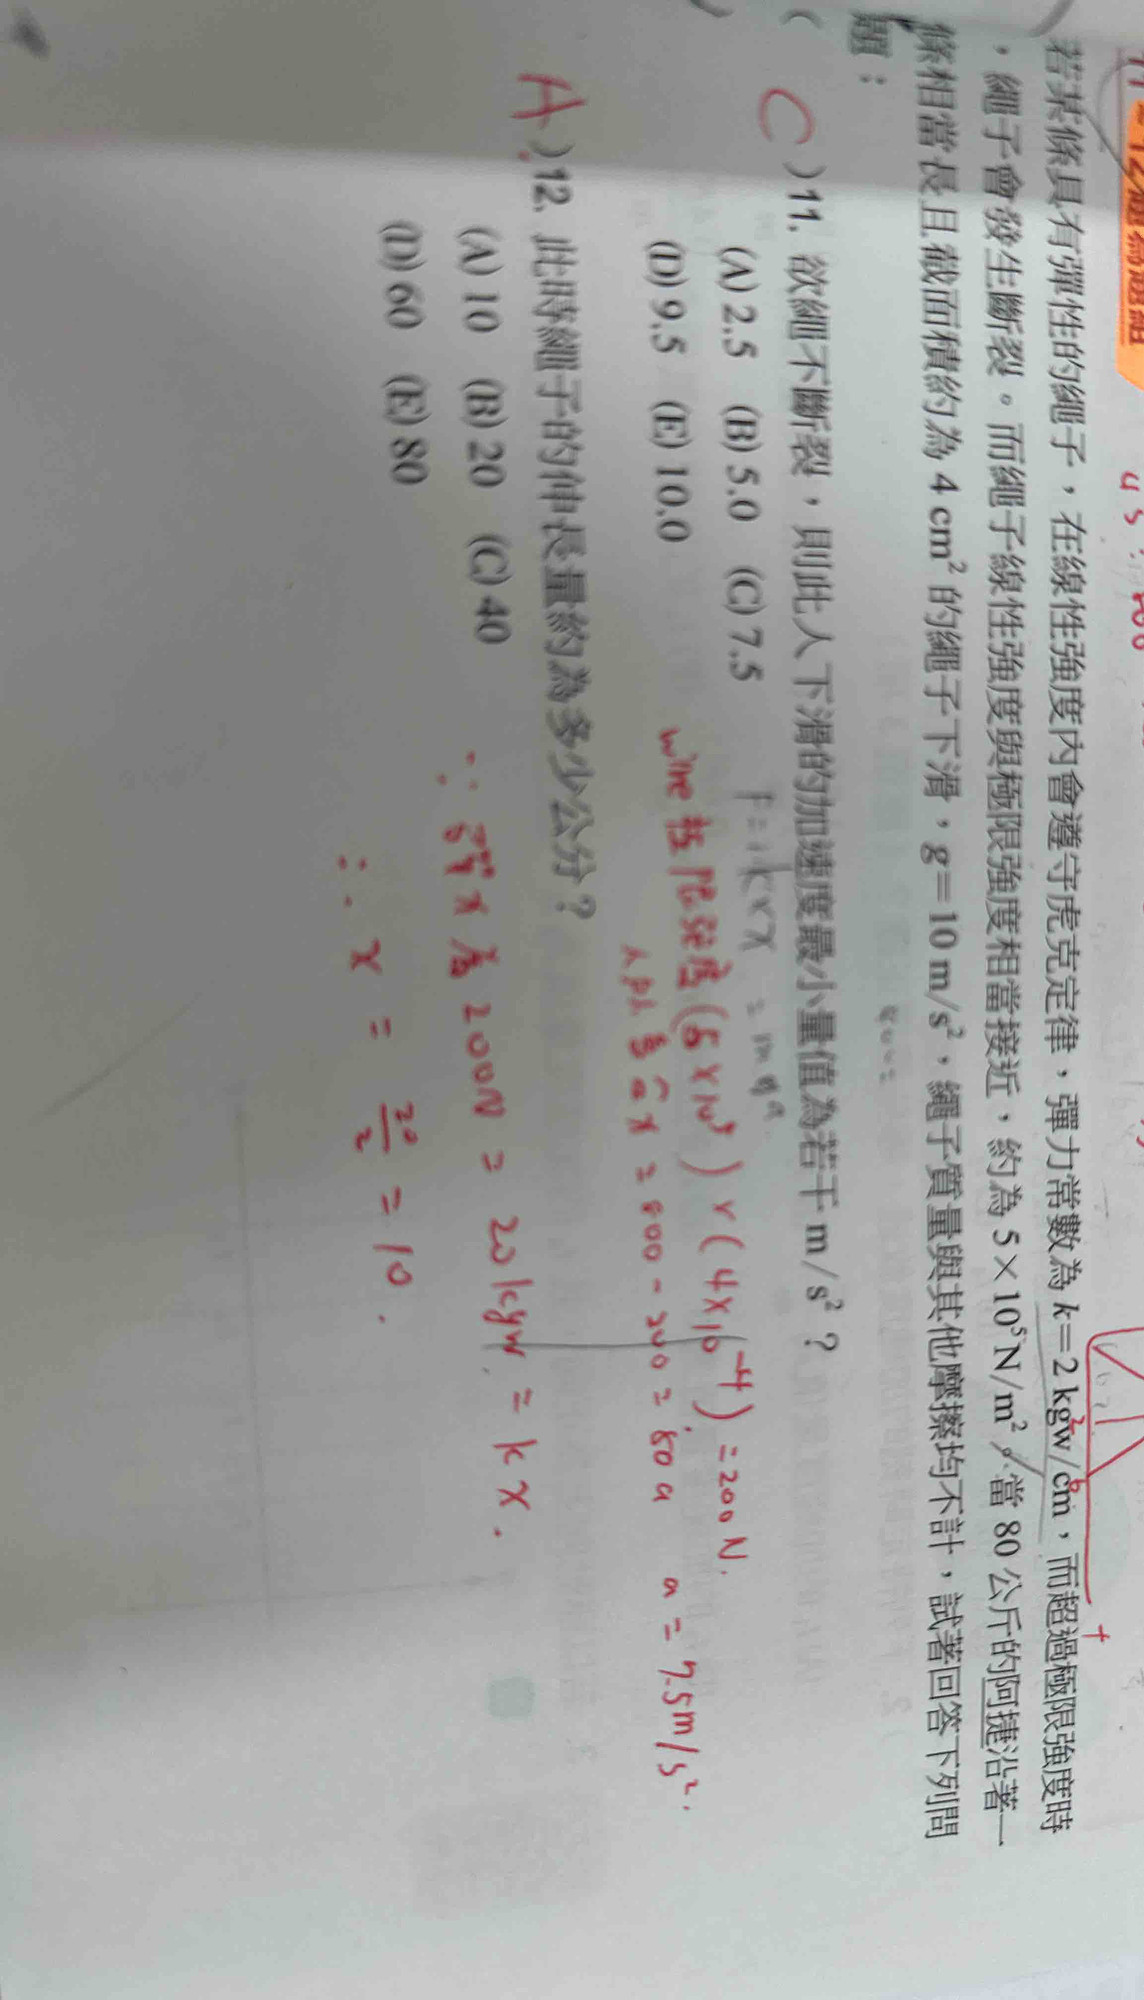 11~12題為題組
若某條具有彈性的繩子，在線性強度內會遵守虎克定律，彈力常數為 k=2 kgw/cm，而超過極限強度時
，繩子會發生斷裂。而繩子線性強度與極限強度相當接近，約為 5×10⁵N/m²。當 80 公斤的阿捷沿著一
條相當長且截面積約為 4 cm² 的繩子下滑，g=10 m/s²，繩子質量與其他摩擦均不計，試著回答下列問
題：
( C )11. 欲繩不斷裂，則此人下滑的加速度最小量值為若干 m/s²？
(A) 2.5 (B) 5.0 (C) 7.5
(D) 9.5 (E) 10.0
(5×10⁵)×(4×10⁻⁴)=200N.
=800-200=80a a=7.5m/s².
( A )12. 此時繩子的伸長量約為多少公分？
(A) 10 (B) 20 (C) 40
(D) 60 (E) 80
200N = 20kgw = kx.
∴ x = 20/2 = 10.